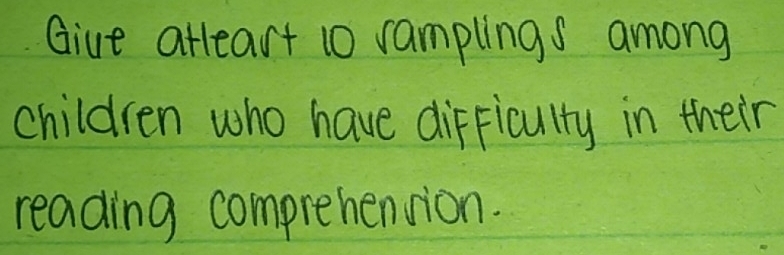 Give atleast 10 samplings among
children who have difficulty in their
reading comprehension.